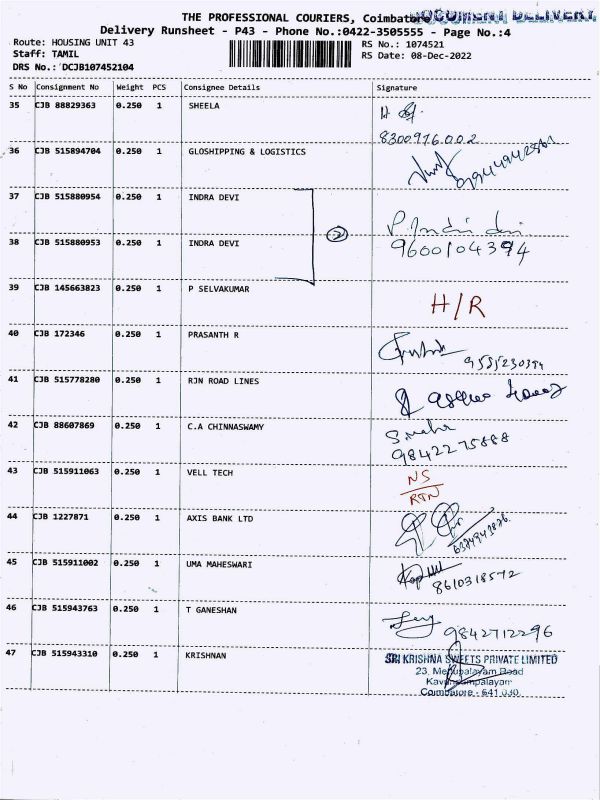 THE PROFESSIONAL COURIERS, Coimbatore
DOCUMENT DELIVERY
Delivery Runsheet - P43 - Phone No.:0422-3505555 - Page No.:4
Route: HOUSING UNIT 43
RS No.: 1074521
Staff: TAMIL
RS Date: 08-Dec-2022
DRS No.: DCJB107452104
S No Consignment No Weight PCS Consignee Details Signature
35 CJB 88829363 0.250 1 SHEELA
8300976002
36 CJB 515894704 0.250 1 GLOSHIPPING & LOGISTICS
37 CJB 515880954 0.250 1 INDRA DEVI
2
38 CJB 515880953 0.250 1 INDRA DEVI 9600104394
39 CJB 145663823 0.250 1 P SELVAKUMAR H/R
40 CJB 172346 0.250 1 PRASANTH R
41 CJB 515778280 0.250 1 RJN ROAD LINES
42 CJB 88607869 0.250 1 C.A CHINNASWAMY
9842275888
43 CJB 515911063 0.250 1 VELL TECH NS
RTN
44 CJB 1227871 0.250 1 AXIS BANK LTD
45 CJB 515911002 0.250 1 UMA MAHESWARI
8610318572
46 CJB 515943763 0.250 1 T GANESHAN
9842712296
47 CJB 515943310 0.250 1 KRISHNAN SRI KRISHNA SWEETS PRIVATE LIMITED
23, Mettupalayam Road
Kavundampalayam
Coimbatore - 641 030.